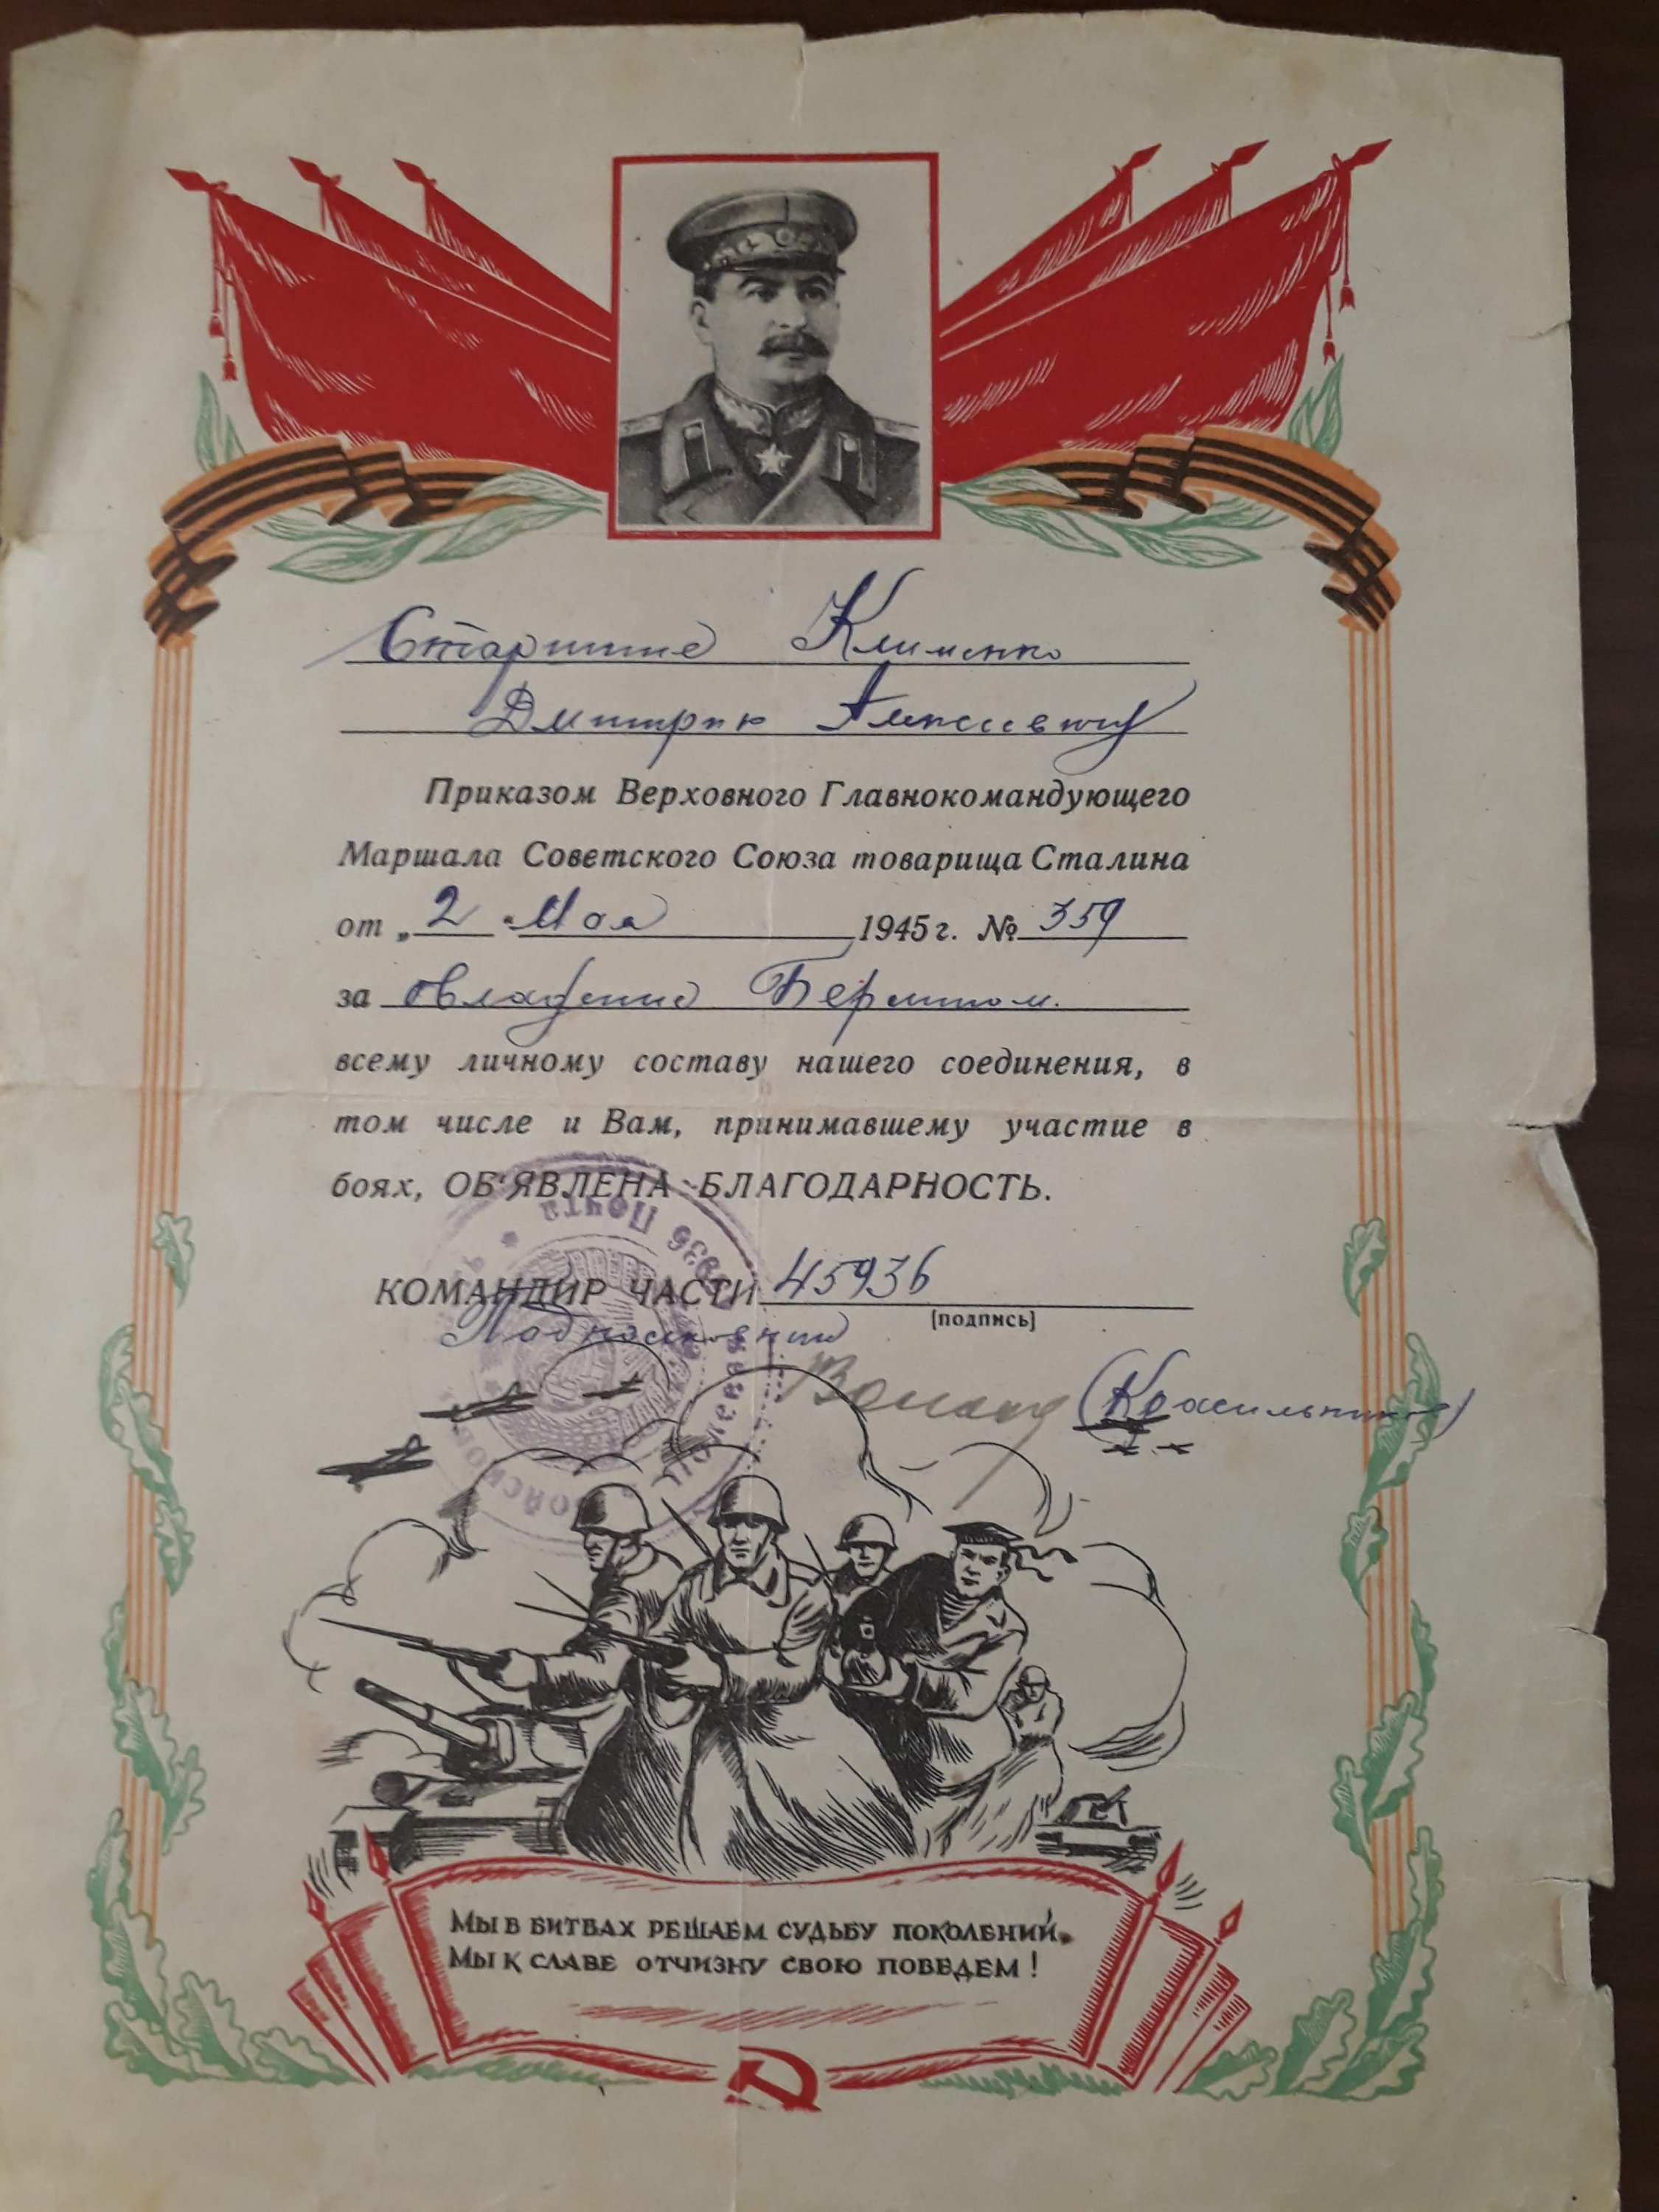 Старшине Клименко
Дмитрию Алексеевичу
Приказом Верховного Главнокомандующего
Маршала Советского Союза товарища Сталина
от „2 " Мая 1945 г. № 359
за овладение Берлином.
всему личному составу нашего соединения, в
том числе и Вам, принимавшему участие в
боях, ОБ'ЯВЛЕНА БЛАГОДАРНОСТЬ.
КОМАНДИР ЧАСТИ 45936
(подпись)
Подполковник
(Красильников)
Полевая Почта
МЫ В БИТВАХ РЕШАЕМ СУДЬБУ ПОКОЛЕНИЙ,
МЫ К СЛАВЕ ОТЧИЗНУ СВОЮ ПОВЕДЕМ!